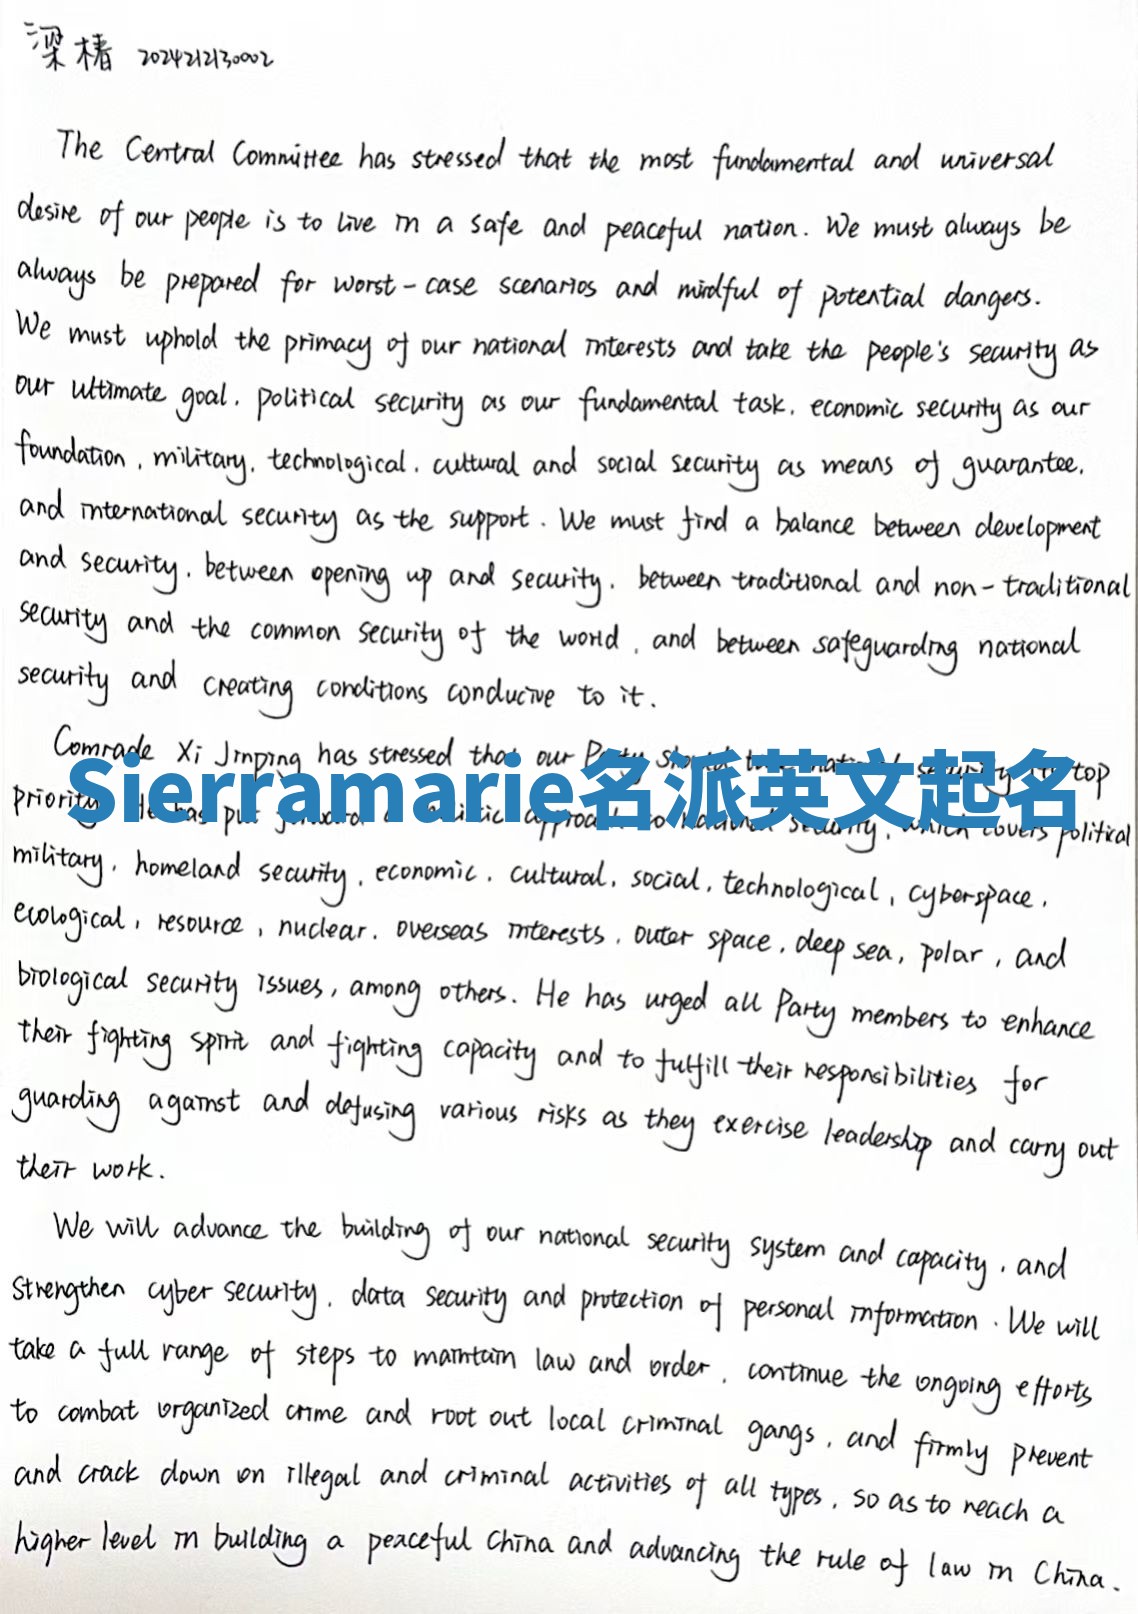 梁椿 2024212130002
The Central Committee has stressed that the most fundamental and universal
desire of our people is to live in a safe and peaceful nation. We must always be
always be prepared for worst-case scenarios and mindful of potential dangers.
We must uphold the primacy of our national interests and take the people's security as
our ultimate goal, political security as our fundamental task, economic security as our
foundation, military, technological, cultural and social security as means of guarantee,
and international security as the support. We must find a balance between development
and security, between opening up and security, between traditional and non-traditional
security and the common security of the world, and between safeguarding national
security and creating conditions conducive to it.
Comrade Xi Jinping has stressed that our Party should take national security top
Sierramarie名派英文起名
priority. He has put forward a holistic approach to national security, which covers political
military, homeland security, economic, cultural, social, technological, cyberspace,
ecological, resource, nuclear, overseas interests, outer space, deep sea, polar, and
biological security issues, among others. He has urged all Party members to enhance
their fighting spirit and fighting capacity and to fulfill their responsibilities for
guarding against and defusing various risks as they exercise leadership and carry out
their work.
We will advance the building of our national security system and capacity, and
strengthen cyber security, data security and protection of personal information. We will
take a full range of steps to maintain law and order, continue the ongoing efforts
to combat organized crime and root out local criminal gangs, and firmly prevent
and crack down on illegal and criminal activities of all types, so as to reach a
higher level in building a peaceful China and advancing the rule of law in China.